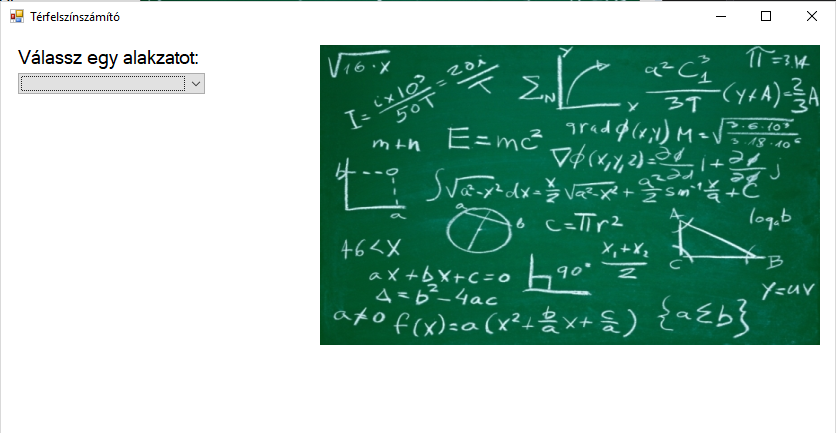 Térfelszínszámító
Válassz egy alakzatot:
√16·x
I = i×10³/50T = 20i/T
ΣN
Y
X
a² C₁³/3T (y+A)=2/3A
π=3.14
m+n
E=mc²
grad ϕ(x,y) M=√3·6·10³/3·18·10⁶
∇ϕ(x,y,z)=∂ϕ/∂d i+∂ϕ/∂ϕ j
b
a
∫√a²-x² dx=x/2 √a²-x²+a²/2 sin⁻¹ x/a+C
a
b
c=πr²
A
C
B
logₐb
+6<X
x₁+x₂/2
90°
ax+bx+c=0
Δ=b²-4ac
y=uv
a≠0 f(x)=a(x²+b/a x+c/a) {aΣb}